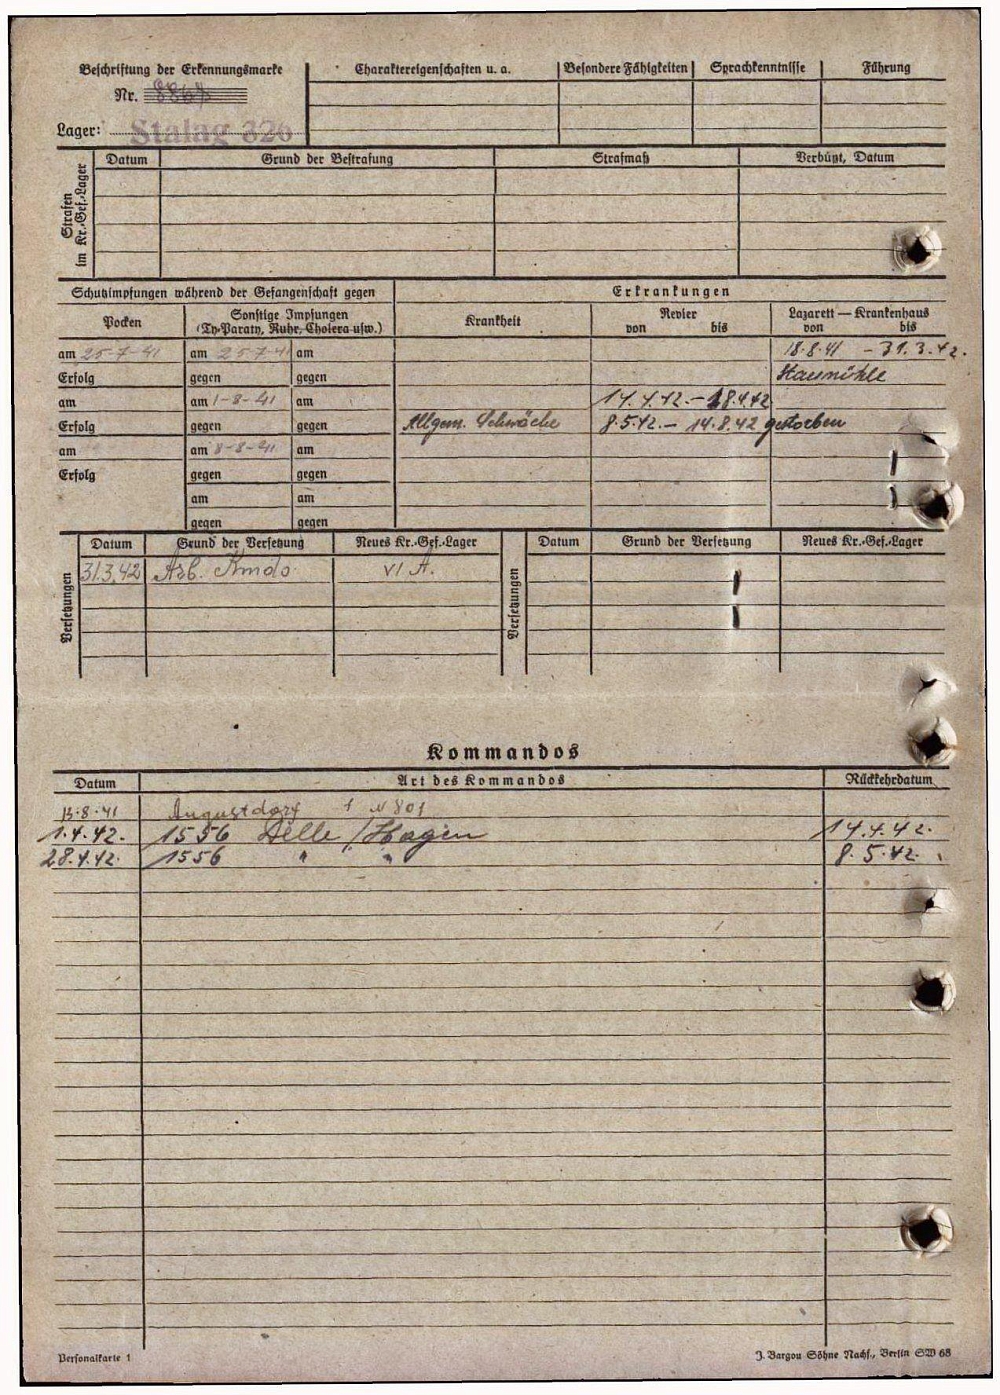 Beschriftung der Erkennungsmarke
Nr. 8867
Lager: Stalag 326
Charaktereigenschaften u. a. Besondere Fähigkeiten Sprachkenntnisse Führung
Strafen im Kr.-Gef.-Lager
Datum Grund der Bestrafung Strafmaß Verbüßt, Datum
Schutzimpfungen während der Gefangenschaft gegen Erkrankungen
Pocken Sonstige Impfungen (Ty-Paraty, Ruhr, Cholera usw.) Krankheit Revier von bis Lazarett — Krankenhaus von bis
am 25-7-41 am 25-7-41 am 18.8.41 - 31.3.42.
Erfolg gegen gegen Staumühle
am am 1-8-41 am 14.4.42. - 28.4.42
Erfolg gegen gegen Allgem. Schwäche 8.5.42. - 14.8.42 gestorben
am am 8-8-41 am
Erfolg gegen gegen
am am
gegen gegen
Versetzungen
Datum Grund der Versetzung Neues Kr.-Gef.-Lager
31.3.42 Arb. Kmdo. VI A.
Versetzungen
Datum Grund der Versetzung Neues Kr.-Gef.-Lager
Kommandos
Datum Art des Kommandos Rückkehrdatum
13.8.41 Augustdorf 1 N 801
1.4.42. 1556 Delle / Hagen 14.4.42.
28.4.42. 1556 " " 8.5.42.
Personalkarte 1
J. Bargou Söhne Nachf., Berlin SW 68